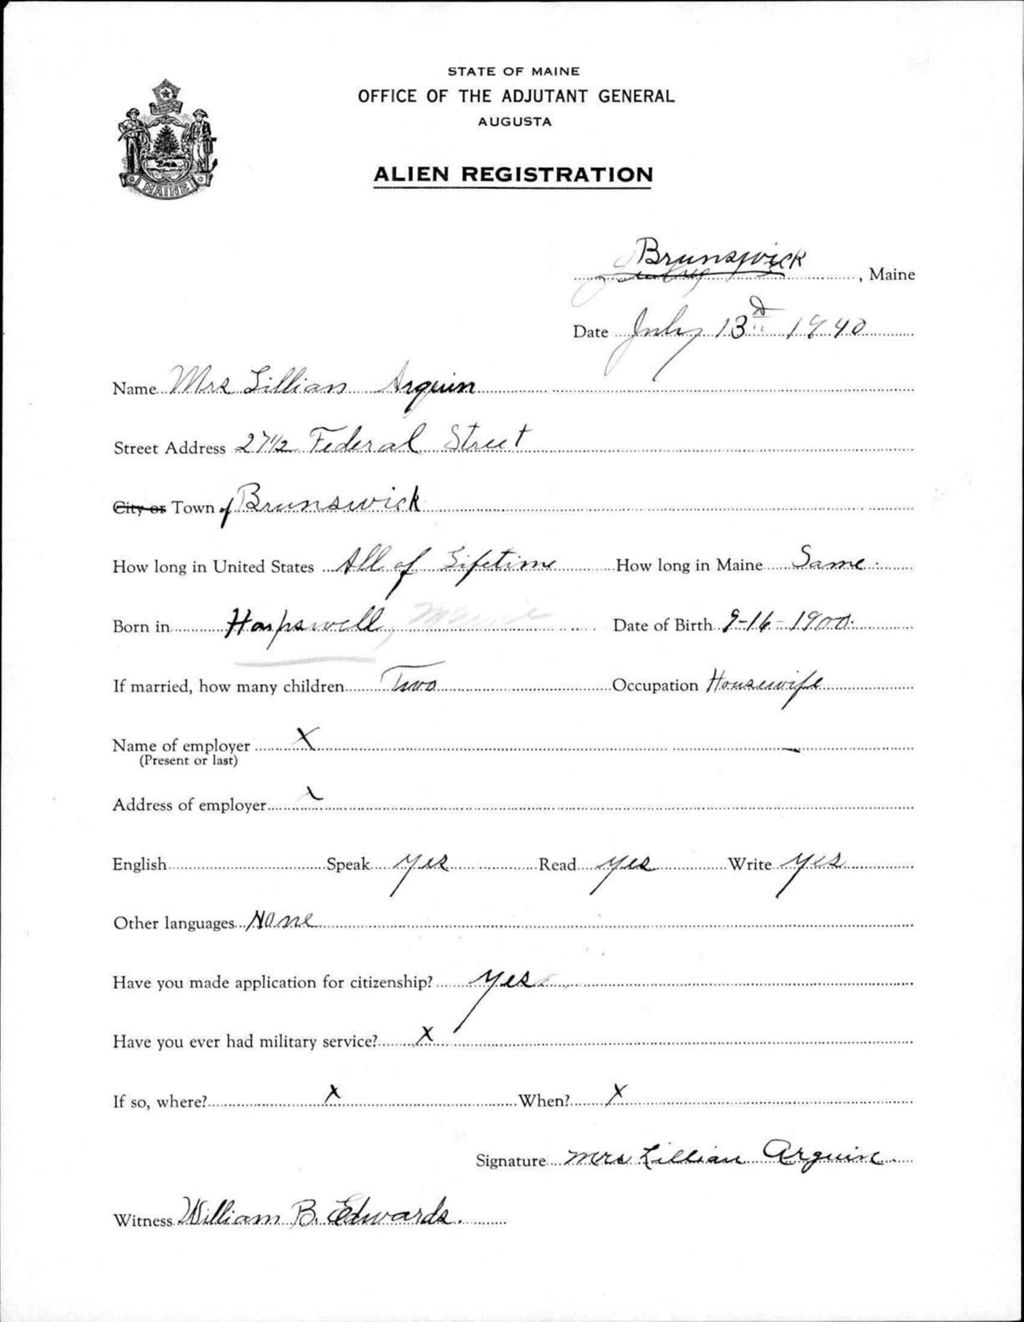 STATE OF MAINE
OFFICE OF THE ADJUTANT GENERAL
AUGUSTA
MAINE
ALIEN REGISTRATION
Brunswick, Maine
Date July 13d 1940
Name Mrs Lillian Arguin
Street Address 27 1/2 Federal Street
City or Town of Brunswick
How long in United States All of Lifetime How long in Maine Same.
Born in Harpswell, Maine Date of Birth 9-16-1900.
If married, how many children Two Occupation Housewife
Name of employer X
(Present or last)
Address of employer X
English Speak yes Read yes Write yes
Other languages None
Have you made application for citizenship? yes
Have you ever had military service? X
If so, where? X When? X
Signature Mrs Lillian Arguin
Witness William B. Edwards.